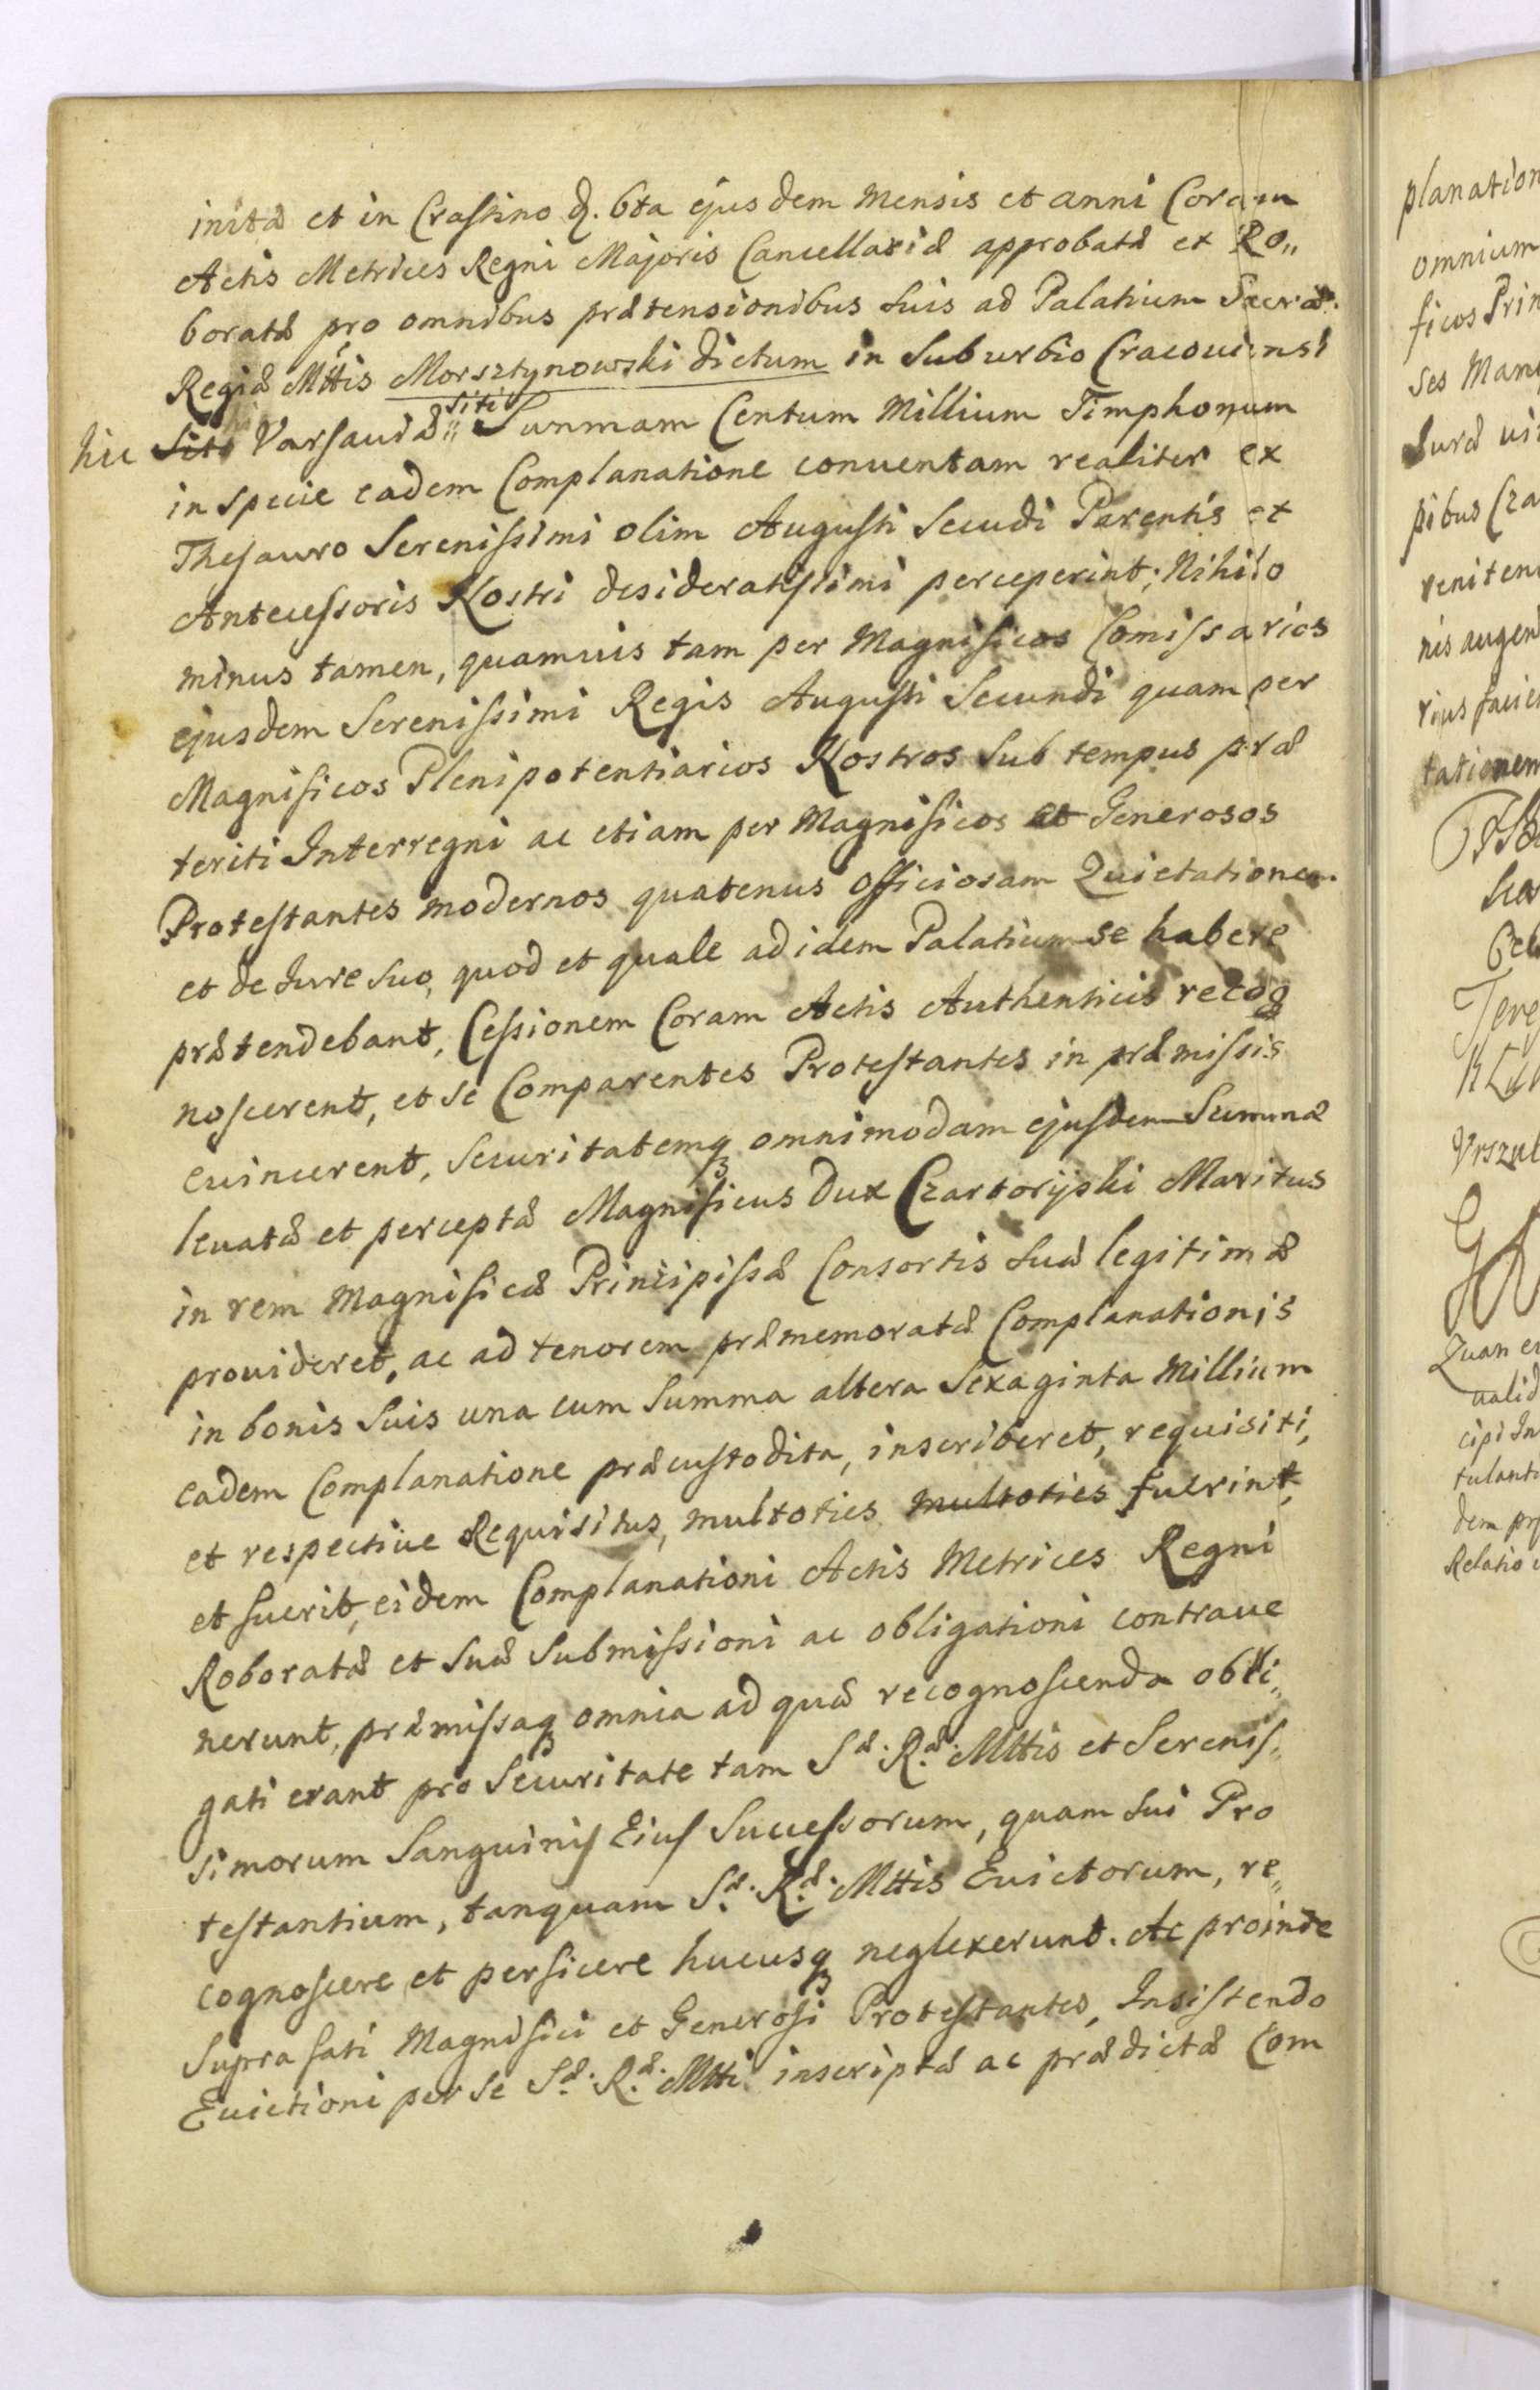 initæ et in Crastino d. 6ta ejusdem Mensis et anni Coram
Actis Metrices Regni Majoris Cancellariæ approbatæ et Ro„
boratæ pro omnibus prætensionibus suis ad Palatium Sacræ
Regiæ Mttis Morsztynowski dictum in Suburbio Cracouiensi
hic Sito Varsauiæ„ siti Summam Centum Millium Timphonum
in specie eadem Complanatione conuentam realiter ex
Thesauro Serenissimi olim Augusti Secudi Parentis et
Antecessoris Nostri desideratissimi perceperint; Nihilo
minus tamen, quamuis tam per Magnificos Comissarios
ejusdem Serenissimi Regis Augusti Secundi quam per
Magnificos Plenipotentiarios Nostros Sub tempus præ
teriti Interregni ac etiam per Magnificos et Generosos
Protestantes modernos quatenus officiosam Quietationem
et de Jure suo, quod et quale ad idem Palatium se habere
prætendebant, Cessionem Coram Actis Authenticis recog
noscerent, et se Comparentes Protestantes in præmissis
euincerent, Securitatemq omnimodam ejusdem Summæ
leuatæ et perceptæ Magnificus Dux Czartoryski Maritus
in rem Magnificæ Principissæ Consortis suæ legitimæ
prouideret, ac ad tenorem præmemoratæ Complanationis
in bonis suis una cum Summa altera Sexaginta Millium
eadem Complanatione præcustodita, inscriberet, requisiti,
et respectiue Requisitus, multoties multoties fuerint,
et fuerit, eidem Complanationi Actis Metrices Regni
Roboratæ et suæ Submissioni ac obligationi contraue
nerunt, præmissaq omnia ad quæ recognoscenda obli„
gati erant pro Securitate tam Sæ. Ræ. Mttis et Serenis„
simorum Sanguinis Eius Successorum, quam sui Pro
testantium, tanquam Sæ. Ræ. Mttis Euictorum, re„
cognoscere et perficere hucusq neglexerunt. Ac proinde
Supra fati Magnifici et Generosi Protestantes, Insistendo
Euictioni per se Sæ. Ræ. Mtti inscriptæ ac prædictæ Com
planation
omnium
ficos Prin
ses Man
Juræ ui
pibus Cza
renitend
nis augen
rius facie
tationem
Urszul
Quan e
ualid
cipi In
tulant
dem pr
Relatio